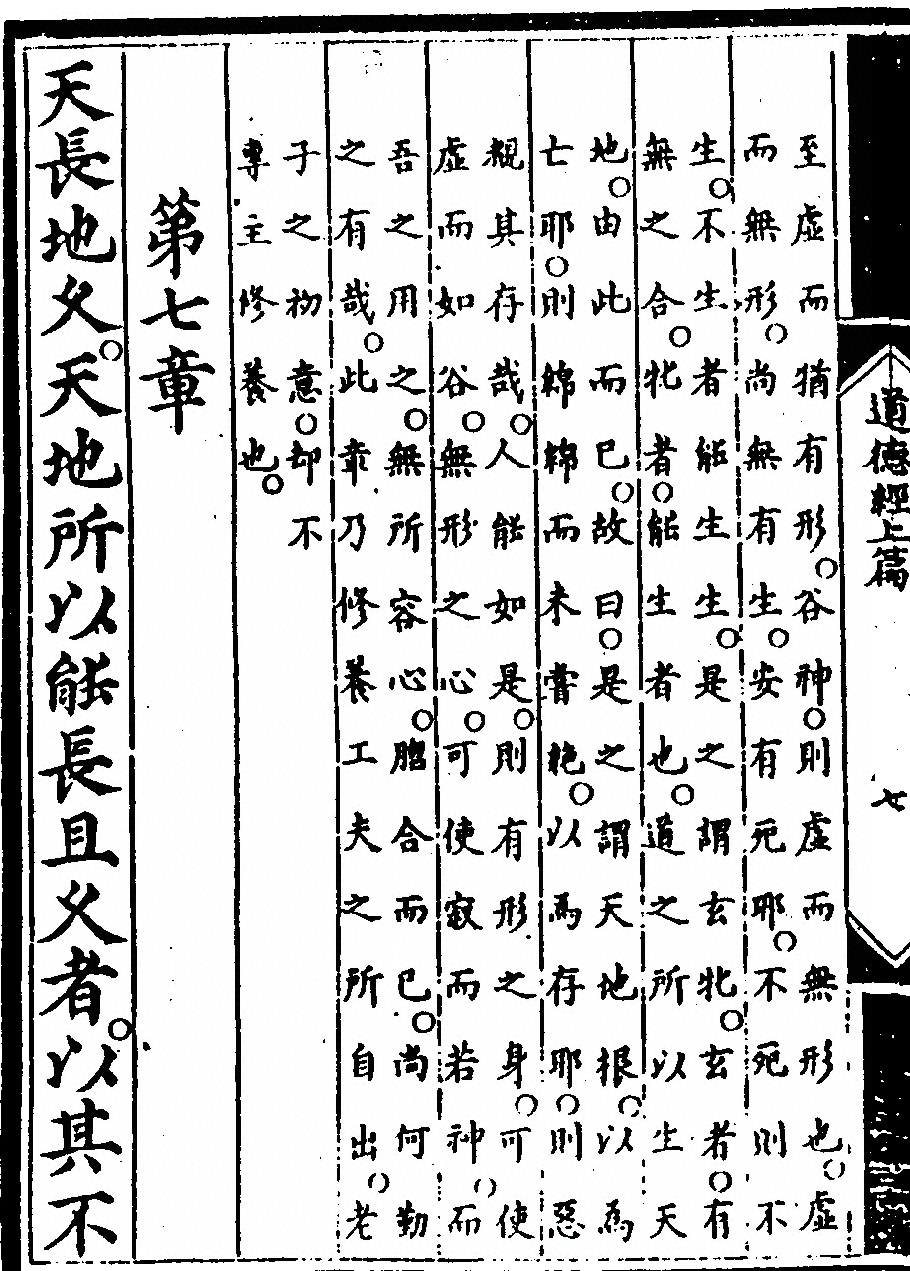 道德經上篇
七
至虛而猶有形○谷神○則虛而無形也○虛
而無形○尚無有生○安有死耶○不死則不
生○不生者能生生○是之謂玄牝○玄者○有
無之合○牝者○能生生者也○道之所以生天
地○由此而已○故曰○是之謂天地根○以為
亡耶○則綿綿而未嘗絶○以為存耶○則惡
覩其存哉○人能如是○則有形之身○可使
虛而如谷○無形之心○可使寂而若神○而
吾之用之○無所容心○脗合而已○尚何勤
之有哉○此章乃修養工夫之所自出○老
子之初意○却不
專主修養也○
第七章
天長地久○天地所以能長且久者○以其不